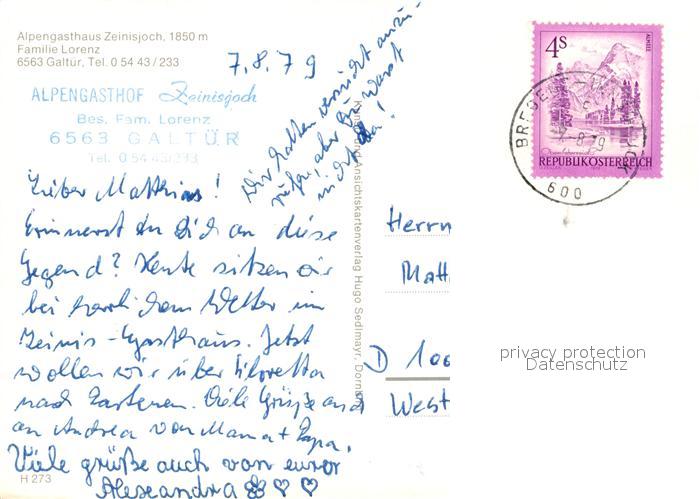 Alpengasthaus Zeinisjoch, 1850 m
Familie Lorenz
6563 Galtür, Tel. 0 54 43 / 233
7.8.79
ALPENGASTHOF Zeinisjoch
Bes. Fam. Lorenz
6563 GALTÜR
Tel. 05443/233
Wir hatten versucht anzu-
rufen, aber Du warst
nicht da!
Lieber Matthias!
Erinnerst Du Dich an diese
Gegend? Heute sitzen wir
bei herrlichem Wetter im
Zeinis-Gasthaus. Jetzt
wollen wir über Silvretta
nach Partenen. Viele Grüße auch
an Andrea von Mama + Papa.
Viele grüße auch von eurer
Alexandra
H 273
Kunst- und Ansichtskartenverlag Hugo Sedlmayr, Dornbirn
Herrn
Matt
D 100
West
4S
ALMSEE
REPUBLIK ÖSTERREICH
BREGENZ
7.-8.79
600
privacy protection
Datenschutz